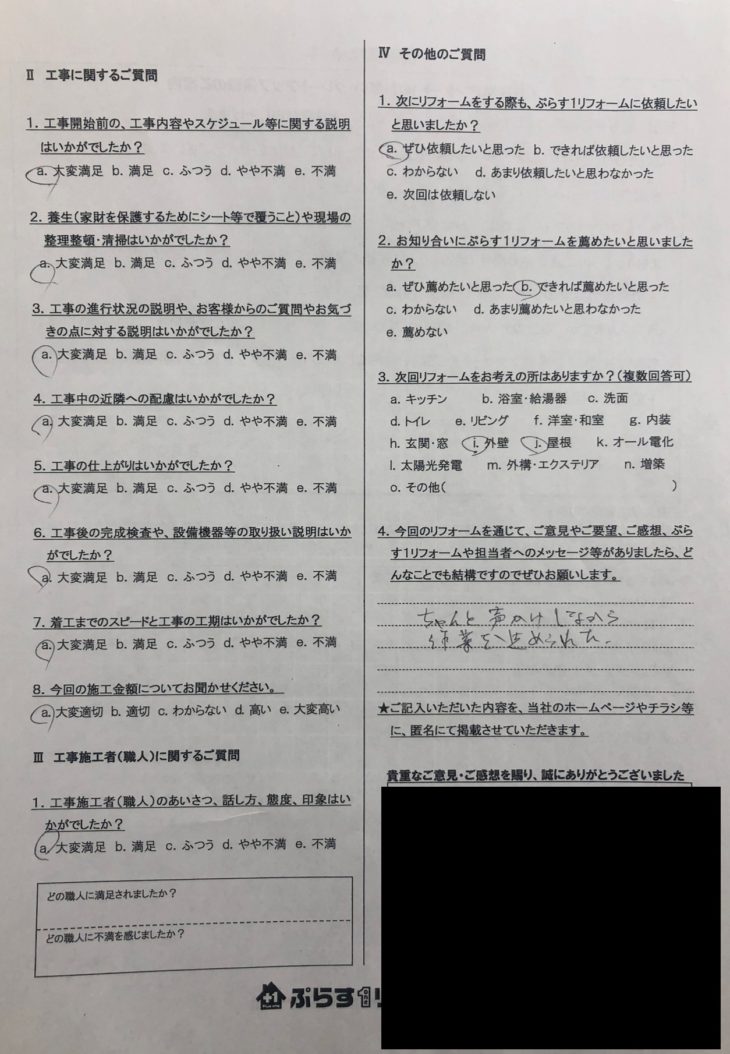 Ⅱ 工事に関するご質問
1. 工事開始前の、工事内容やスケジュール等に関する説明
はいかがでしたか？
a. 大変満足 b. 満足 c. ふつう d. やや不満 e. 不満
2. 養生（家財を保護するためにシート等で覆うこと）や現場の
整理整頓・清掃はいかがでしたか？
a. 大変満足 b. 満足 c. ふつう d. やや不満 e. 不満
3. 工事の進行状況の説明や、お客様からのご質問やお気づ
きの点に対する説明はいかがでしたか？
a. 大変満足 b. 満足 c. ふつう d. やや不満 e. 不満
4. 工事中の近隣への配慮はいかがでしたか？
a. 大変満足 b. 満足 c. ふつう d. やや不満 e. 不満
5. 工事の仕上がりはいかがでしたか？
a. 大変満足 b. 満足 c. ふつう d. やや不満 e. 不満
6. 工事後の完成検査や、設備機器等の取り扱い説明はいか
がでしたか？
a. 大変満足 b. 満足 c. ふつう d. やや不満 e. 不満
7. 着工までのスピードと工事の工期はいかがでしたか？
a. 大変満足 b. 満足 c. ふつう d. やや不満 e. 不満
8. 今回の施工金額についてお聞かせください。
a. 大変適切 b. 適切 c. わからない d. 高い e. 大変高い
Ⅲ 工事施工者（職人）に関するご質問
1. 工事施工者（職人）のあいさつ、話し方、態度、印象はい
かがでしたか？
a. 大変満足 b. 満足 c. ふつう d. やや不満 e. 不満
どの職人に満足されましたか？
どの職人に不満を感じましたか？
Ⅳ その他のご質問
1. 次にリフォームをする際も、ぷらす1リフォームに依頼したい
と思いましたか？
a. ぜひ依頼したいと思った b. できれば依頼したいと思った
c. わからない d. あまり依頼したいと思わなかった
e. 次回は依頼しない
2. お知り合いにぷらす1リフォームを薦めたいと思いました
か？
a. ぜひ薦めたいと思った b. できれば薦めたいと思った
c. わからない d. あまり薦めたいと思わなかった
e. 薦めない
3. 次回リフォームをお考えの所はありますか？（複数回答可）
a. キッチン b. 浴室・給湯器 c. 洗面
d. トイレ e. リビング f. 洋室・和室 g. 内装
h. 玄関・窓 i. 外壁 j. 屋根 k. オール電化
l. 太陽光発電 m. 外構・エクステリア n. 増築
o. その他（ ）
4. 今回のリフォームを通じて、ご意見やご要望、ご感想、ぷら
す1リフォームや担当者へのメッセージ等がありましたら、ど
んなことでも結構ですのでぜひお願いします。
ちゃんと声かけしながら
作業を進められた。
★ご記入いただいた内容を、当社のホームページやチラシ等
に、匿名にて掲載させていただきます。
貴重なご意見・ご感想を賜り、誠にありがとうございました
+1 ぷらす1リ